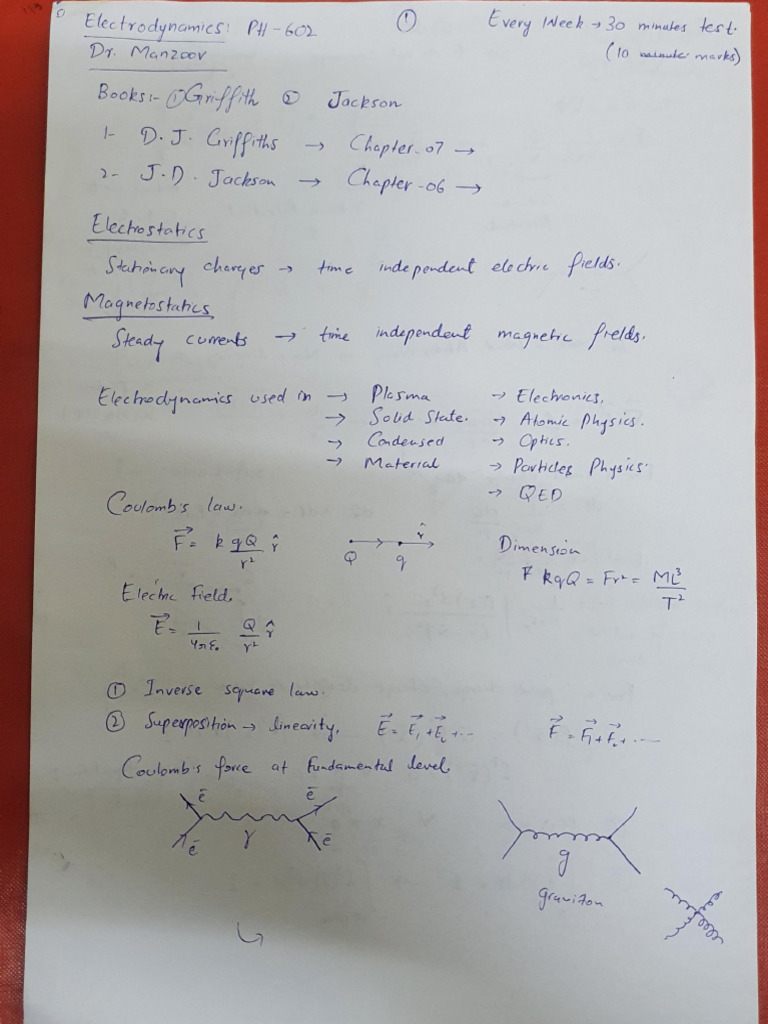 Electrodynamics: PH-602
①
Every Week → 30 minutes test.
(10 minute marks)
Dr. Manzoor
Books:- ① Griffith ② Jackson
1- D. J. Griffiths → Chapter-07 →
2- J.D. Jackson → Chapter-06 →
Electrostatics
Stationary charges → time independent electric fields.
Magnetostatics
Steady currents → time independent magnetic fields.
Electrodynamics used in → Plasma → Electronics,
→ Solid State. → Atomic Physics.
→ Condensed → Optics.
→ Material → Particles Physics
→ QED
Coulomb's law.
F⃗ = k qQ/r² r̂
Q q r̂
Dimension
F kqQ = Fr² = ML³/T²
Electric field,
E⃗ = 1/4πε₀ Q/r² r̂
① Inverse square law.
② Superposition → linearity, E⃗ = E⃗₁ + E⃗₂ + ... F⃗ = F⃗₁ + F⃗₂ + ....
Coulomb's force at fundamental level,
ē ē
ē γ ē
g
graviton